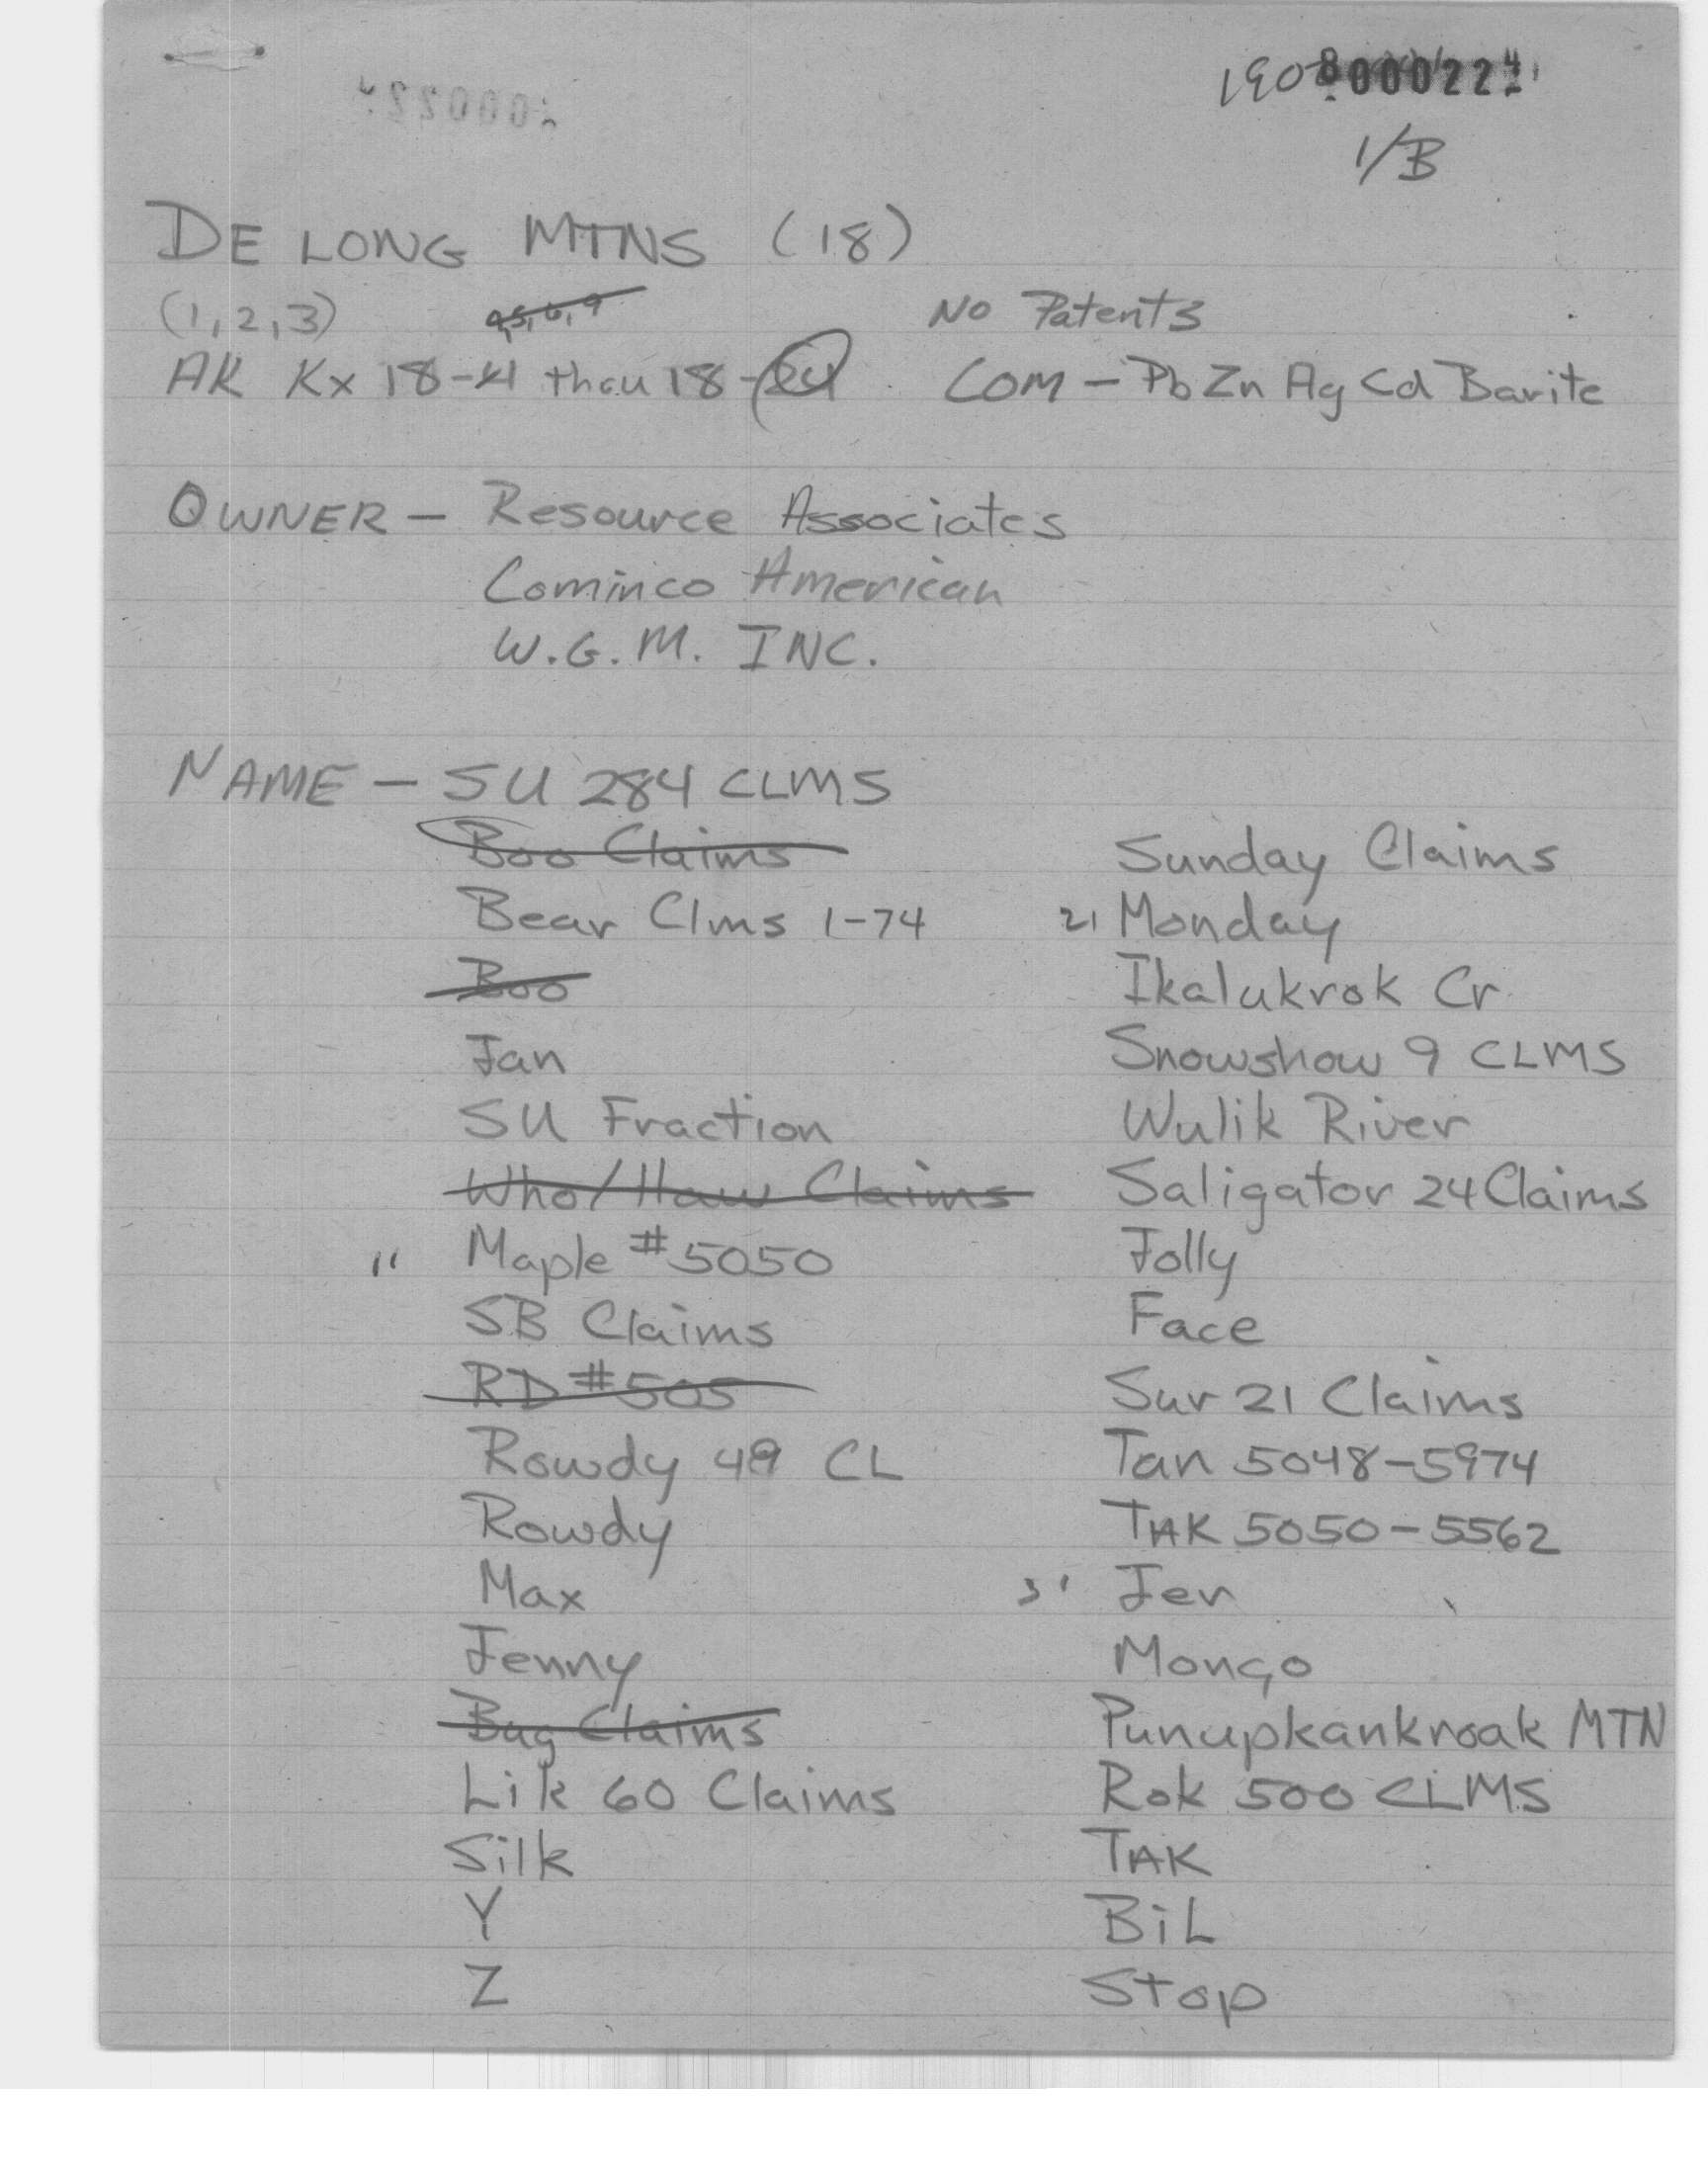 1/B
DE LONG MTNS (18)
(1,2,3) No Patents
AK Kx 18-41 thru 18-24 COM - Pb Zn Ag Cd Barite
OWNER - Resource Associates
Cominco American
W.G.M. INC.
NAME - SU 284 CLMS
Boo Claims
Bear Clms 1-74
Boo
Jan
SU Fraction
Who/Haw Claims
11 Maple #5050
SB Claims
RD #505
Rowdy 49 CL
Rowdy
Max
Jenny
Bug Claims
Lik 60 Claims
Silk
Y
Z
Sunday Claims
21 Monday
Ikalukrok Cr
Snowshow 9 CLMS
Wulik River
Saligator 24 Claims
Jolly
Face
Sur 21 Claims
Tan 5048-5974
TAK 5050-5562
31 Jen
Mongo
Punupkankroak MTN
Rok 500 CLMS
TAK
BiL
Stop